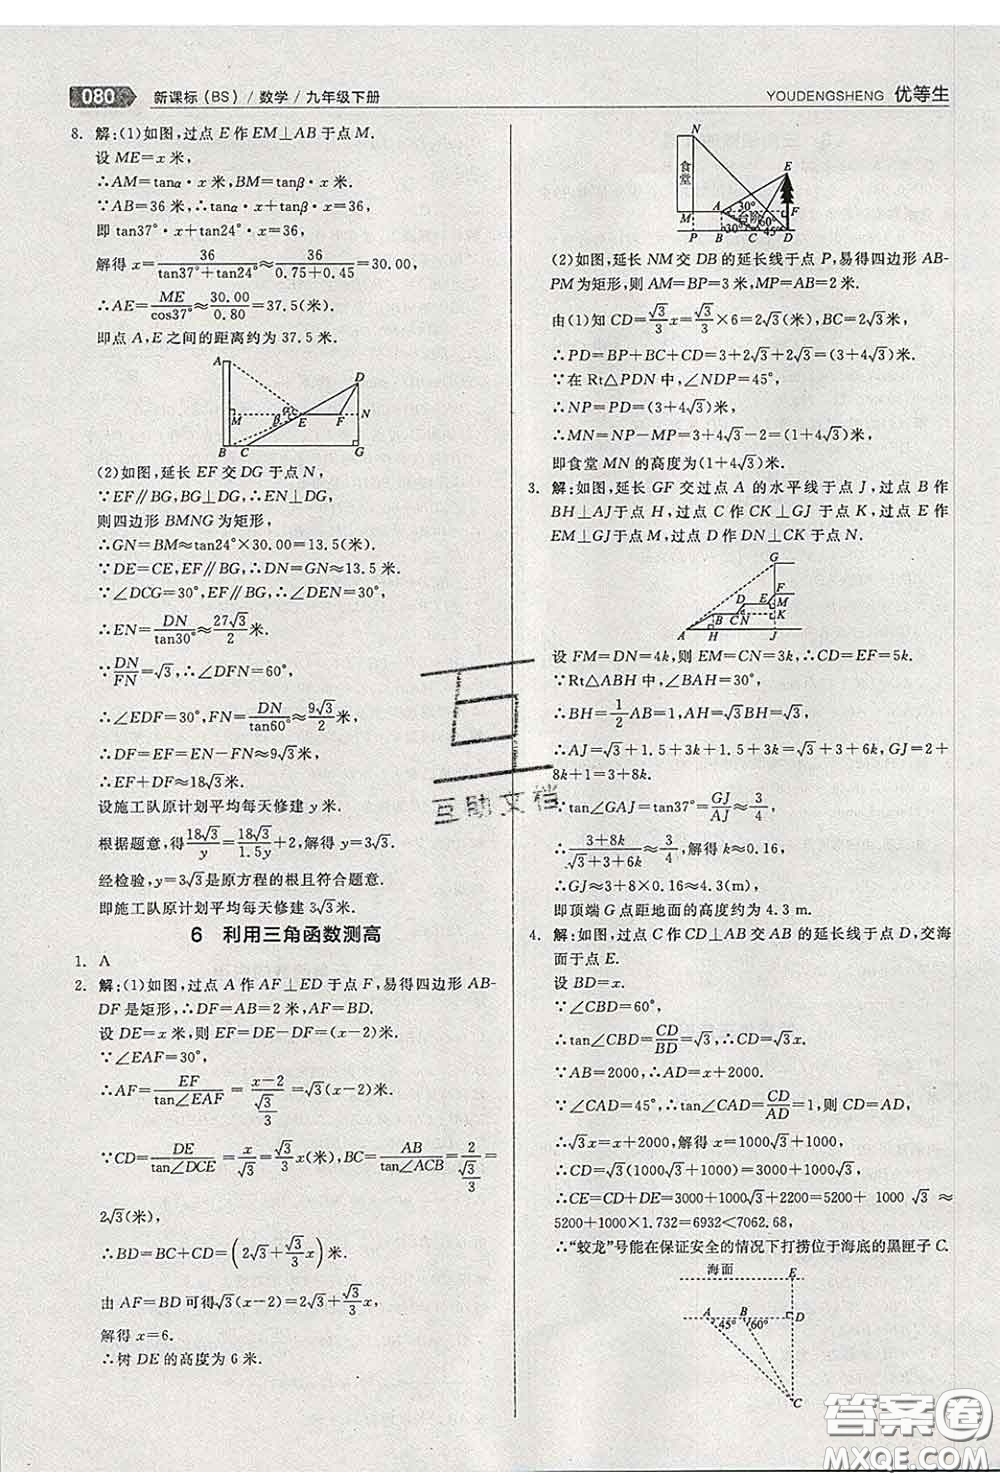 080 新课标(BS)/数学/九年级下册
YOUDENGSHENG 优等生
8. 解:(1)如图,过点 E 作 EM⊥AB 于点 M.
设 ME=x 米,
∴AM=tanα·x 米,BM=tanβ·x 米,
∵AB=36 米,∴tanα·x+tanβ·x=36,
即 tan37°·x+tan24°·x=36,
解得 x=36/(tan37°+tan24°)≈36/(0.75+0.45)=30.00,
∴AE=ME/cos37°≈30.00/0.80=37.5(米).
即点 A,E 之间的距离约为 37.5 米.
A
D
M
α
β
E
F
N
B
C
G
(2)如图,延长 EF 交 DG 于点 N,
∵EF∥BG,BG⊥DG,∴EN⊥DG,
则四边形 BMNG 为矩形,
∴GN=BM≈tan24°×30.00=13.5(米).
∵DE=CE,EF∥BG,∴DN=GN≈13.5米.
∵∠DCG=30°,EF∥BG,∴∠DEN=30°,
∴EN=DN/tan30°≈27√3/2米.
∵DN/FN=√3,∴∠DFN=60°,
∴∠EDF=30°,FN=DN/tan60°≈9√3/2米,
∴DF=EF=EN-FN≈9√3米,
∴EF+DF≈18√3米.
设施工队原计划平均每天修建 y 米.
根据题意,得18√3/y=18√3/1.5y+2,解得 y=3√3.
经检验,y=3√3是原方程的根且符合题意.
即施工队原计划平均每天修建 3√3米.
6 利用三角函数测高
1. A
2. 解:(1)如图,过点 A 作 AF⊥ED 于点 F,易得四边形 AB-
DF 是矩形,∴DF=AB=2 米,AF=BD.
设 DE=x 米,则 EF=DE-DF=(x-2)米.
∵∠EAF=30°,
∴AF=EF/tan∠EAF=(x-2)/(√3/3)=√3(x-2)米.
∵CD=DE/tan∠DCE=x/√3=√3/3x(米),BC=AB/tan∠ACB=2/(√3/3)=
2√3(米),
∴BD=BC+CD=(2√3+√3/3x)米.
由 AF=BD 可得√3(x-2)=2√3+√3/3x,
解得 x=6.
∴树 DE 的高度为 6 米.
N
食堂
E
A
30°
F
M
台阶
60°
30°
45°
P
B
C
D
(2)如图,延长 NM 交 DB 的延长线于点 P,易得四边形 AB-
PM 为矩形,则 AM=BP=3 米,MP=AB=2 米.
由(1)知 CD=√3/3x=√3/3×6=2√3(米),BC=2√3米,
∴PD=BP+BC+CD=3+2√3+2√3=(3+4√3)米.
∵在 Rt△PDN 中,∠NDP=45°,
∴NP=PD=(3+4√3)米,
∴MN=NP-MP=3+4√3-2=(1+4√3)米.
即食堂 MN 的高度为(1+4√3)米.
3. 解:如图,延长 GF 交过点 A 的水平线于点 J,过点 B 作
BH⊥AJ于点 H,过点 C 作 CK⊥GJ 于点 K,过点 E 作
EM⊥GJ于点 M,过点 D 作 DN⊥CK于点 N.
G
F
D
E
M
B
C
N
K
A
H
J
设 FM=DN=4k,则 EM=CN=3k,∴CD=EF=5k.
∵Rt△ABH 中,∠BAH=30°,
∴BH=1/2AB=1,AH=√3BH=√3,
∴AJ=√3+1.5+3k+1.5+3k=3+√3+6k,GJ=2+
8k+1=3+8k.
∵tan∠GAJ=tan37°=GJ/AJ≈3/4,
∴(3+8k)/(√3+3+6k)≈3/4,解得 k≈0.16,
∴GJ≈3+8×0.16≈4.3(m).
即顶端 G 点距地面的高度约为 4.3 m.
4. 解:如图,过点 C 作 CD⊥AB 交 AB 的延长线于点 D,交海
面于点 E.
设 BD=x.
∵∠CBD=60°,
∴tan∠CBD=CD/BD=√3,∴CD=√3x.
∵AB=2000,∴AD=x+2000.
∵∠CAD=45°,∴tan∠CAD=CD/AD=1,则 CD=AD,
∴√3x=x+2000,解得 x=1000√3+1000,
∴CD=√3(1000√3+1000)=3000+1000√3,
∴CE=CD+DE=3000+1000√3+2200=5200+1000√3≈
5200+1000×1.732=6932<7062.68,
∴“蛟龙”号能在保证安全的情况下打捞位于海底的黑匣子 C.
海面
E
A
B
45°
60°
D
C
互助文档
答案圈
MXQE.COM